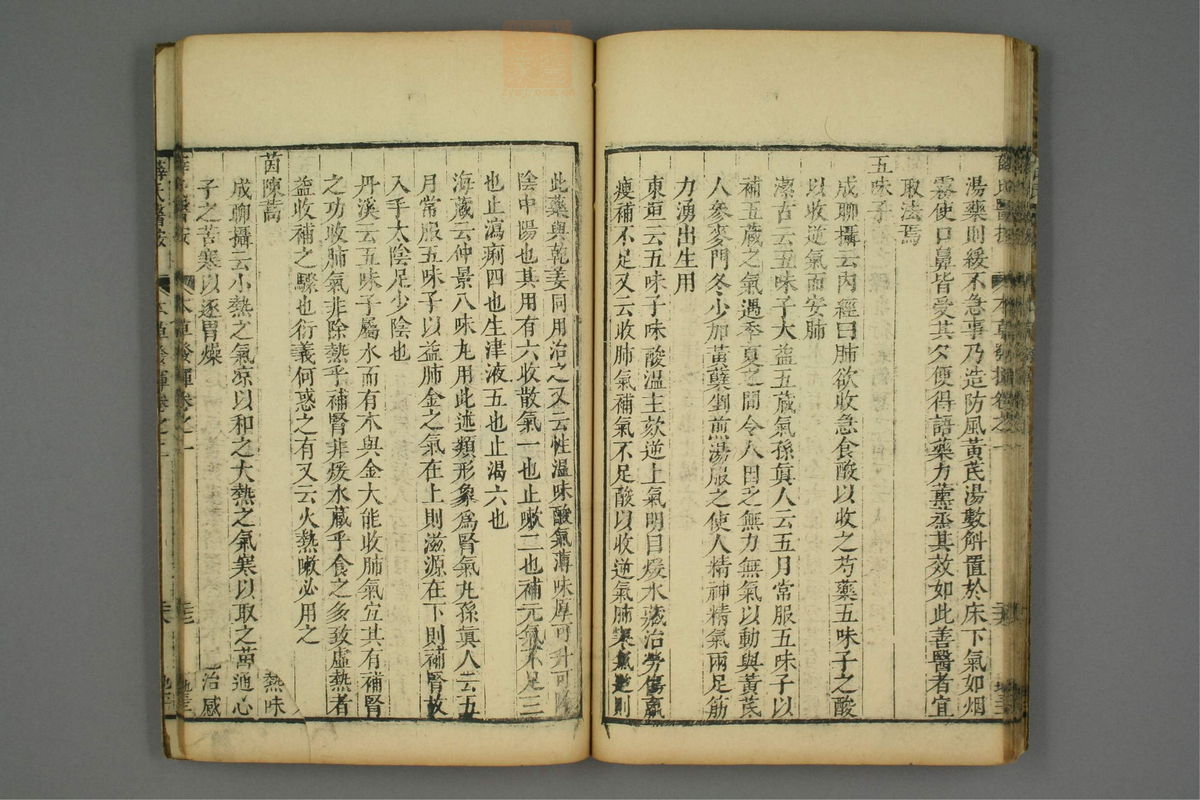 湯藥則緩不急事乃造防風黃芪湯數斛置於床下氣如烟
霧使口鼻皆受其夕便得語藥力薰烝其效如此善醫者宜
取法焉
五味子
成聊攝云內經曰肺欲收急食酸以收之芍藥五味子之酸
以收逆氣而安肺
潔古云五味子大益五藏氣孫眞人云五月常服五味子以
補五藏之氣遇季夏之間令人困乏無力無氣以動與黃芪
人參麥門冬少加黃蘗剉煎湯服之使人精神精氣兩足筋
力湧出生用
東垣云五味子味酸溫主欬逆上氣明目煖水藏治勞傷羸
瘦補不足又云收肺氣補氣不足酸以收逆氣肺寒氣逆則
此藥與乾姜同用治之又云性溫味酸氣薄味厚可升可降
陰中陽也其用有六收散氣一也止嗽二也補元氣不足三
也止瀉痢四也生津液五也止渴六也
海藏云仲景八味丸用此述類形象爲腎氣丸孫眞人云五
月常服五味子以益肺金之氣在上則滋源在下則補腎故
入手太陰足少陰也
丹溪云五味子屬水而有木與金大能收肺氣宜其有補腎
之功收肺氣非除熱乎補腎非煖水藏乎食之多致虛熱者
益收補之驟也衍義何惑之有又云火熱嗽必用之
茵陳蒿
成聊攝云小熱之氣凉以和之大熱之氣寒以取之茵
子之苦寒以逐胃燥
熱味
通心
治感
薛氏醫按
本草發揮卷之一